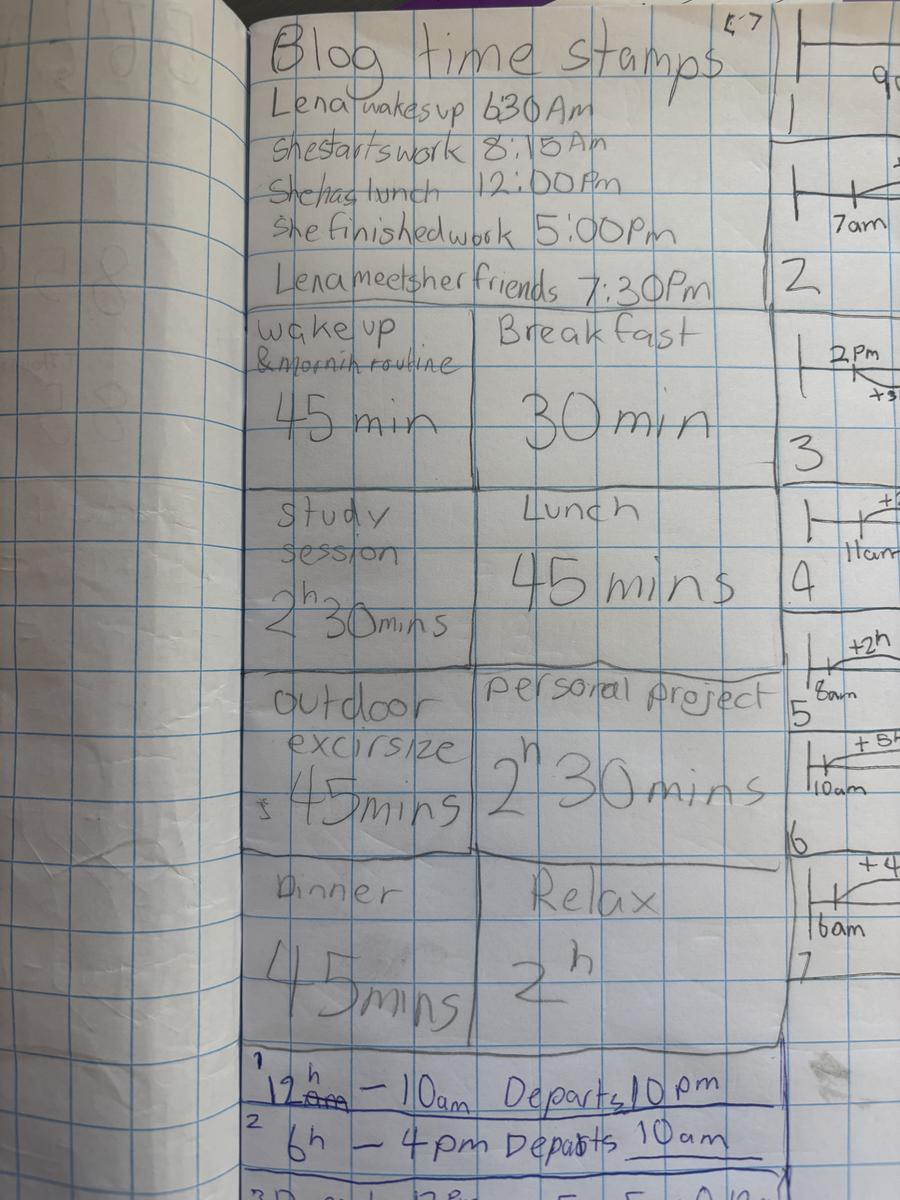 Blog time stamps
Lena wakes up 6:30 Am
She starts work 8:15 Am
She has lunch 12:00 Pm
She finished work 5:00 Pm
Lena meets her friends 7:30 Pm
wake up
& mornin routine
45 min
Breakfast
30 min
study
session
2h 30 mins
Lunch
45 mins
outdoor
excirsize
45 mins
personal project
2h 30 mins
Dinner
45 mins
Relax
2h
1
12h am – 10am Departs 10 pm
2
6h – 4 pm Departs 10am
1
7am
2
2 Pm
3
11am
4
+2h
8am
5
10am
6
+4
6am
7